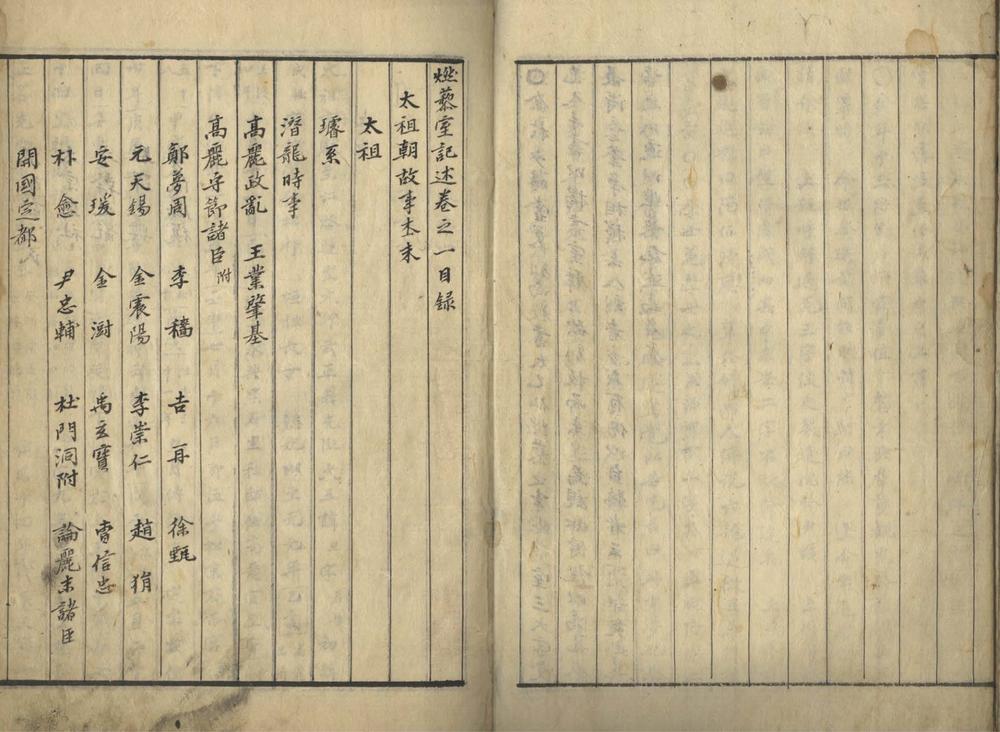 燃藜室記述卷之一目録
太祖朝故事本末
太祖
璿系
潛龍時事
高麗政亂 王業肇基
高麗守節諸臣附
鄭夢周 李穡 吉再 徐甄
元天錫 金震陽 李崇仁 趙狷
安瑗 金澍 禹玄寶 曺信忠
朴愈 尹忠輔 杜門洞附 論麗末諸臣
開國定都